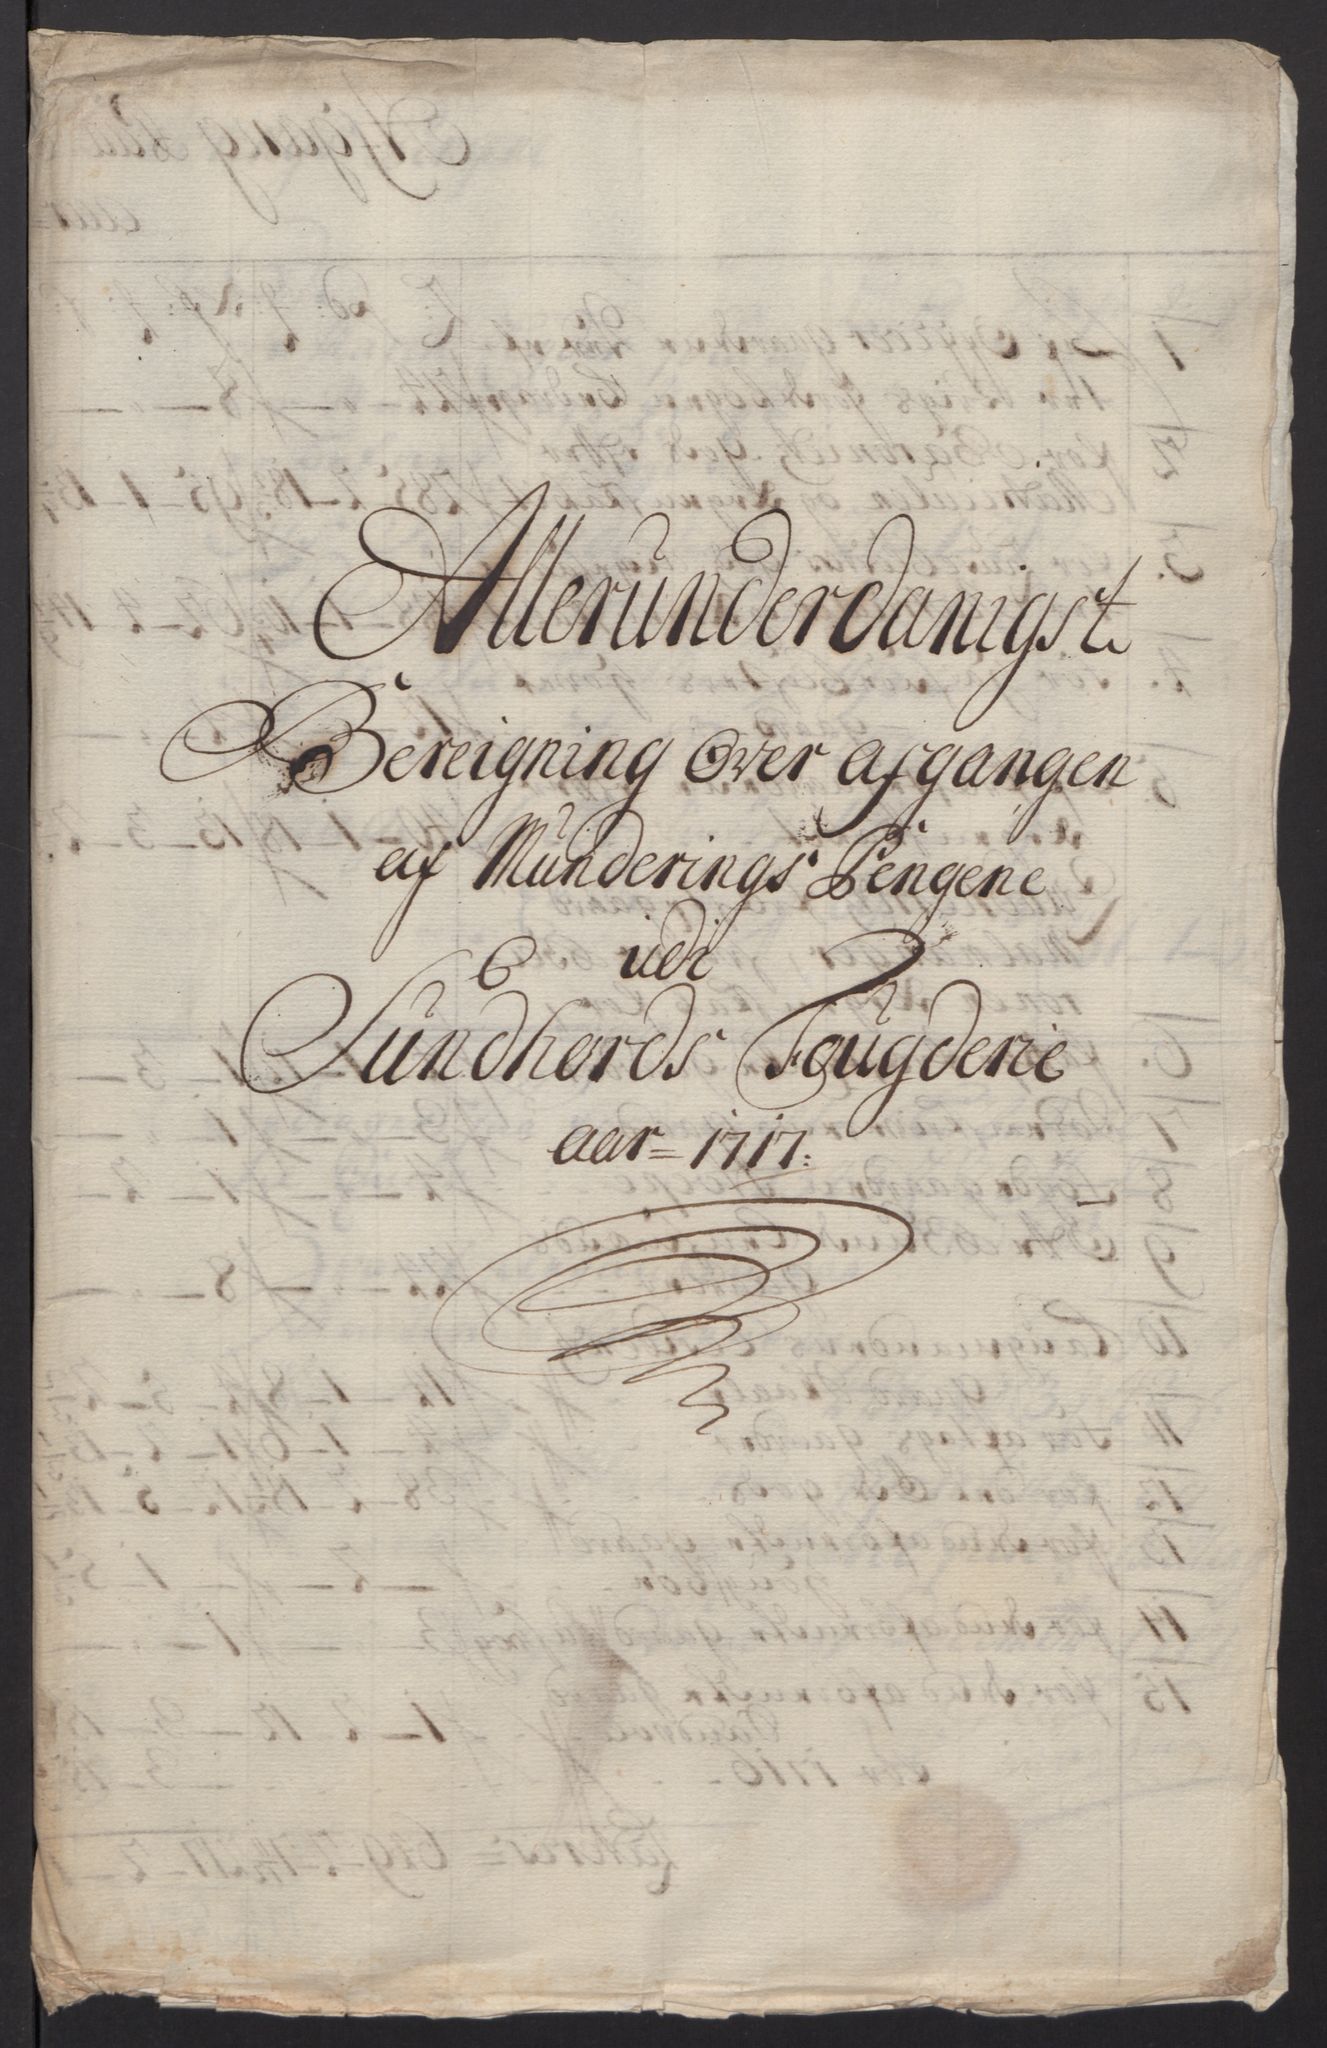 Allerunderdanigst
Bereigning Over afgangen
af Munderings Pengene
udi
Sundhords Fougderie
aar = 1717: